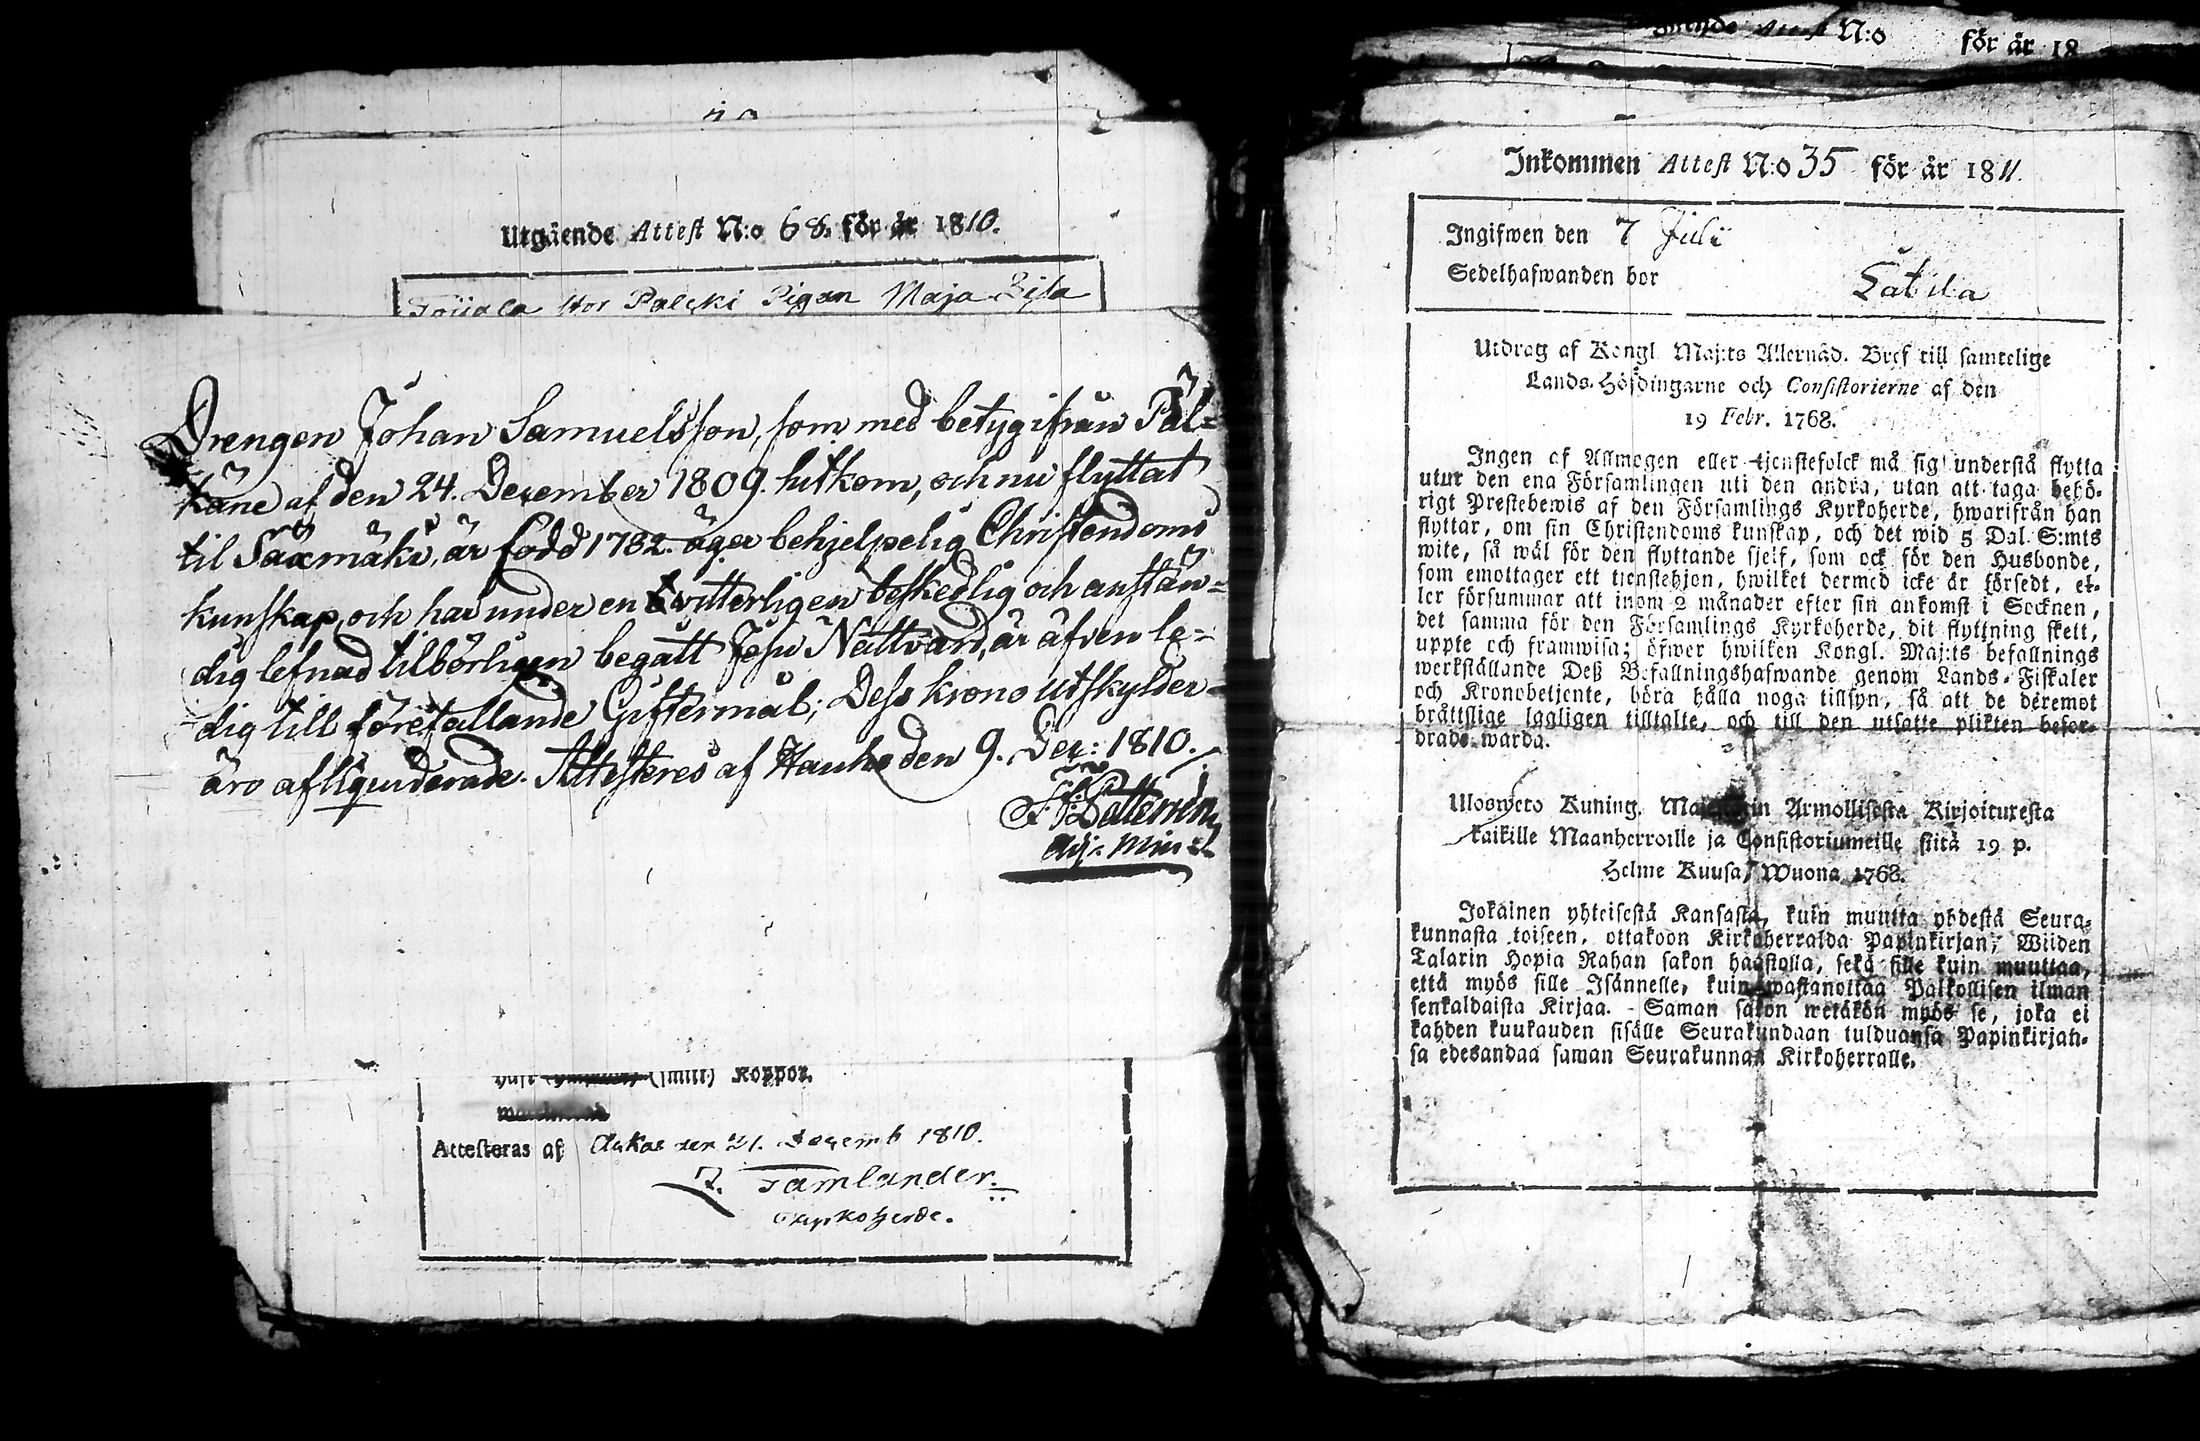 Utgående Attest N:o 68. för år 1810.
Pigan Maja
Drengen Johan Samuelsson, som med betyg ifrån Päl-
käne af den 24. December 1809. hitkom, och nu flyttat
til Sääxmäki, är född 1782. äger behjelpelig Christendoms
kunskap, och har under en witterligen beskedlig och anstän-
dig lefnad tilbörligen begått Jesu Nattvard, är äfven le-
dig till förefallande Giftermål; Dess krono utskylder
äro afliquiderade. Attesteres af Hauho den 9. Dec: 1810.
Adj: Min:
(smitt) Koppor.
Attesteras af Ackas den 21. Decemb 1810.
Tamlander.
Kyrkoherde.
N:o för år 18
Inkommen Attest N:o 35 för år 1811.
Ingifwen den 7 Juli
Sedelhafwanden bor
Utdrag af Kongl. Maj:ts Allernåd. Bref till samtelige
Lands-Höfdingarne och Consistorierne af den
19 Febr. 1768.
Ingen af Allmogen eller tjenstefolck må sig understå flytta
utur den ena Församlingen uti den andra, utan att taga behö-
rigt Prestebewis af den Församlings Kyrkoherde, hwarifrån han
flyttar, om sin Christendoms kunskap, och det wid 5 Dal. S:mts
wite, så wäl för den flyttande sjelf, som ock för den Husbonde,
som emottager ett tjenstehjon, hwilket dermed icke är försedt, el-
ler försummar att inom 2 månader efter sin ankomst i Socknen,
det samma för den Församlings Kyrkoherde, dit flyttning skett,
uppte och framwisa; öfwer hwilken Kongl. Maj:ts befallnings
werkställande Deß Befallningshafwande genom Lands-Fiskaler
och Kronobetjente, böra hålla noga tillsyn, så att de deremot
bråttslige lagligen tilltalte, och till den utsatte plikten befor-
drade warda.
Ulosweto Kuning. Majestetin Armollisesta Kirjoituxesta
kaikille Maanherroille ja Consistoriumeille siitä 19 p.
Helme Kuusa, Wuona 1768.
Jokainen yhteisestä Kansasta, kuin muutta yhdestä Seura-
kunnasta toiseen, ottakoon Kirkoherralda Papinkirjan; Wiiden
Talarin Hopia Rahan sakon haastolla, sekä sille kuin muuttaa,
että myös sille Isännelle, kuin wastanottaa Palkollisen ilman
senkaldaista Kirjaa. Saman sakon wetäkön myös se, joka ei
kahden kuukauden sisälle Seurakundaan tulduansa Papinkirjan-
sa edesandaa saman Seurakunnan Kirkoherralle.